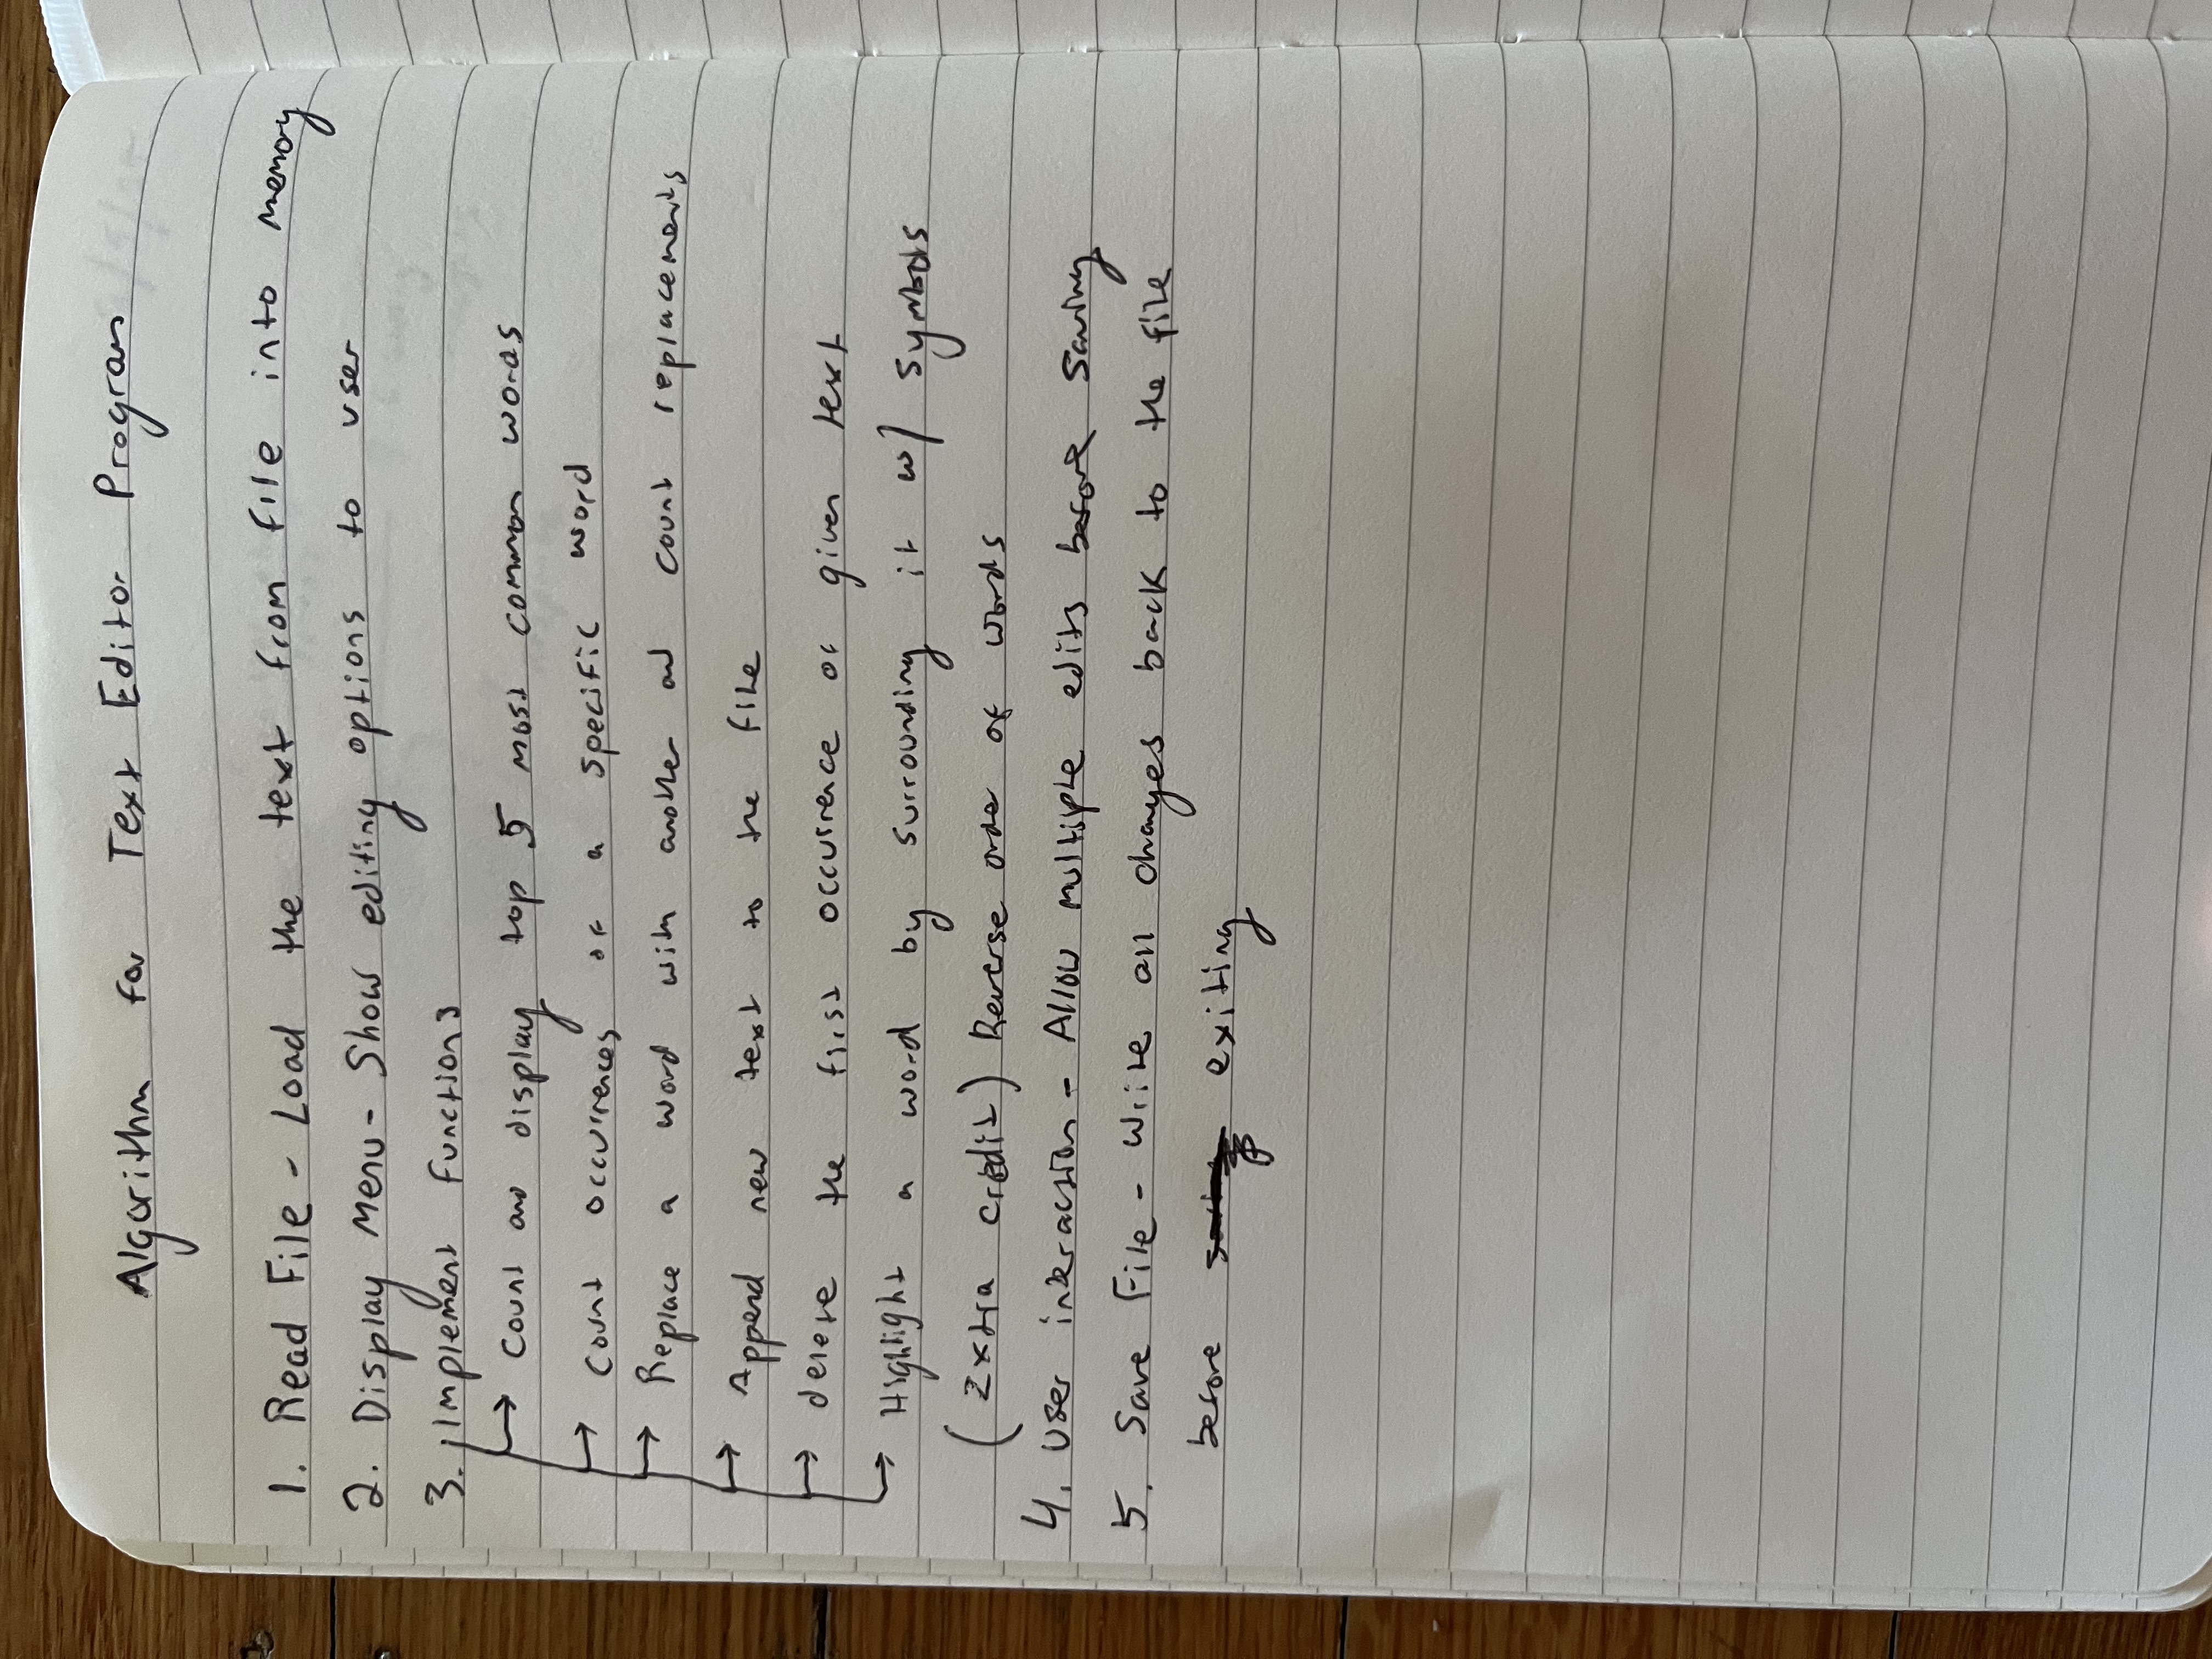 Algorithm for Text Editor Program
1. Read File - Load the text from file into memory
2. Display Menu - Show editing options to user
3. Implement functions
→ Count and display top 5 most common words
→ Count occurrences of a specific word
→ Replace a word with another and count replacements
→ Append new text to the file
→ delete the first occurrence of given text
→ Highlight a word by surrounding it w/ symbols
(Extra credit) Reverse order of words
4. User interaction - Allow multiple edits before saving
5. Save File - Write all changes back to the file
before saving exiting